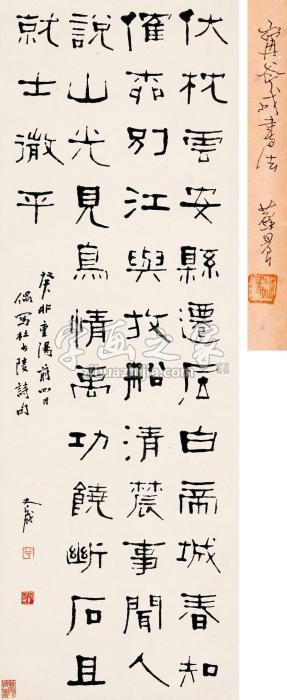 伏枕雲安縣遷居白帝城春知
催柳別江與放船清農事聞人
說山光見鳥情禹功饒斷石且
就土微平
癸卯重陽前四日
偶寫杜少陵詩句
斧成
甯斧成書法
字画之家